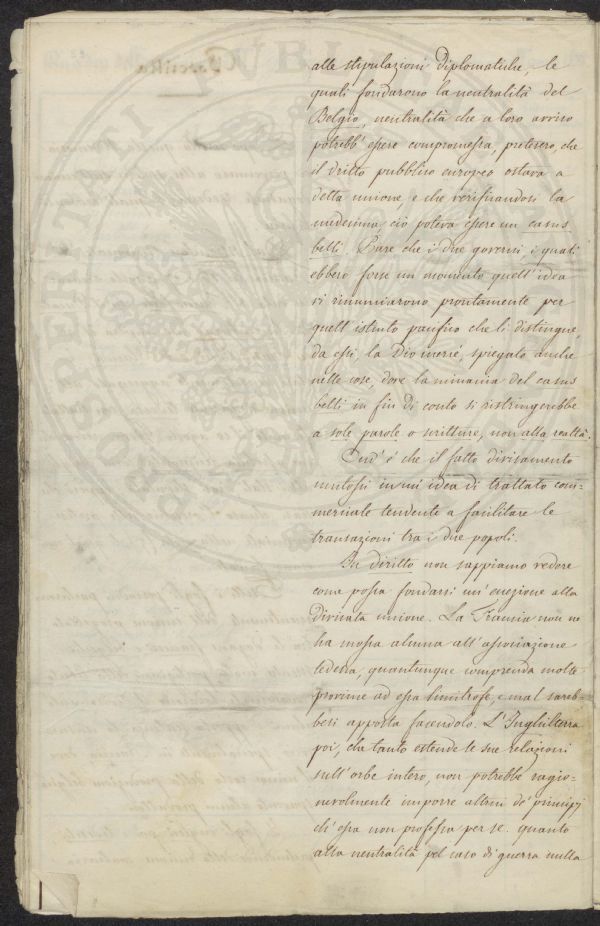 alle stipulazioni diplomatiche, le
quali fondarono la neutralità del
Belgio, neutralità che a loro avviso
potrebb' essere compromessa, pretesero, che
il dritto pubblico europeo ostava a
detta unione, e che verificandosi la
medesima ciò poteva essere un casus
belli. Pare che i due governi i quali
ebbero forse un momento quell' idea
vi rinunciarono prontamente per
quell' istinto pacifico che li distingue,
da essi, la Dio mercé, spiegato anche
nelle cose, dove la minaccia del casus
belli in fin di conto si ristringerebbe
a sole parole o scritture, non alla realtà.
Cud' é che il fatto divisamento
mutossi in un' idea di trattato com=
merciale tendente a facilitare le
transazioni tra i due popoli.
In diritto non sappiamo vedere
come possa fondarsi un' eccezione alla
divisata unione. La Francia non ne
ha mossa alcuna all' associazione
tedesca, quantunque comprenda molte
provincie ad essa limitrofe, e mal sareb=
besi apposta facendolo. L'Inghilterra
poi, che tanto estende le sue relazioni
sull' orbe intero, non potrebbe ragio=
nevolmente imporre altrui de' principj
ch' essa non professa per se. quanto
alla neutralità pel caso di guerra nulla